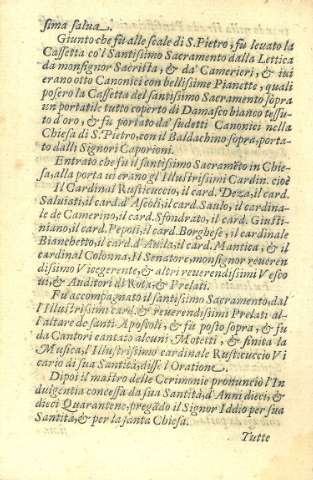 sima salua.
Giunto che fù alle scale di S. Pietro, fu leuato la
Cassetta co'l Santissimo Sacramento dalla Lettica
da monsignor Sacrista, & da' Camerieri, & iui
erano otto Canonici con bellissime Pianette, quali
posero la Cassetta del santissimo Sacramento sopra
un portatile tutto coperto di Damasco bianco tessu-
to d'oro, & fù portato da' sudetti Canonici nella
Chiesa di S. Pietro, con il Baldachino sopra, porta-
to dalli Signori Caporioni.
Entrato che fù il santissimo Sacramẽto in Chie-
sa, alla porta ui erano gl'Illustrissimi Cardin. cioè
Il Cardinal Rusticuccio, il card. Deza, il card.
Saluiati, il card. d'Ascoli, il card. Saulo, il cardina-
le de Camerino, il card. Sfondrato, il card. Giusti-
niano, il card. Pepoli, il card. Borghese, il cardinale
Bianchetto, il card. d'Auila, il card. Mantica, & il
cardinal Colonna, Il Senatore, monsignor reueren
dissimo Vicegerente, & altri reuerendissimi Vesco
ui, & Auditori di Rota, & Prelati.
Fu accompagnato il santissimo Sacramento, dal
l'Illustrissimi card. & reuerendissimi Prelati al-
l'altare de santi Apostoli, & fù posto sopra, & fu
da Cantori cantato alcuni Motetti, & finita la
Musica, l'Illustrissimo cardinale Rusticuccio Vi
cario di sua Santità, disse l'Oratione.
Dipoi il mastro delle Cerimonie pronunciò l'In
dulgentia concessa da sua Santità, d'Anni dieci, &
dieci Quarantene, pregãdo il Signor Iddio per sua
Santità, & per la santa Chiesa.
Tutte